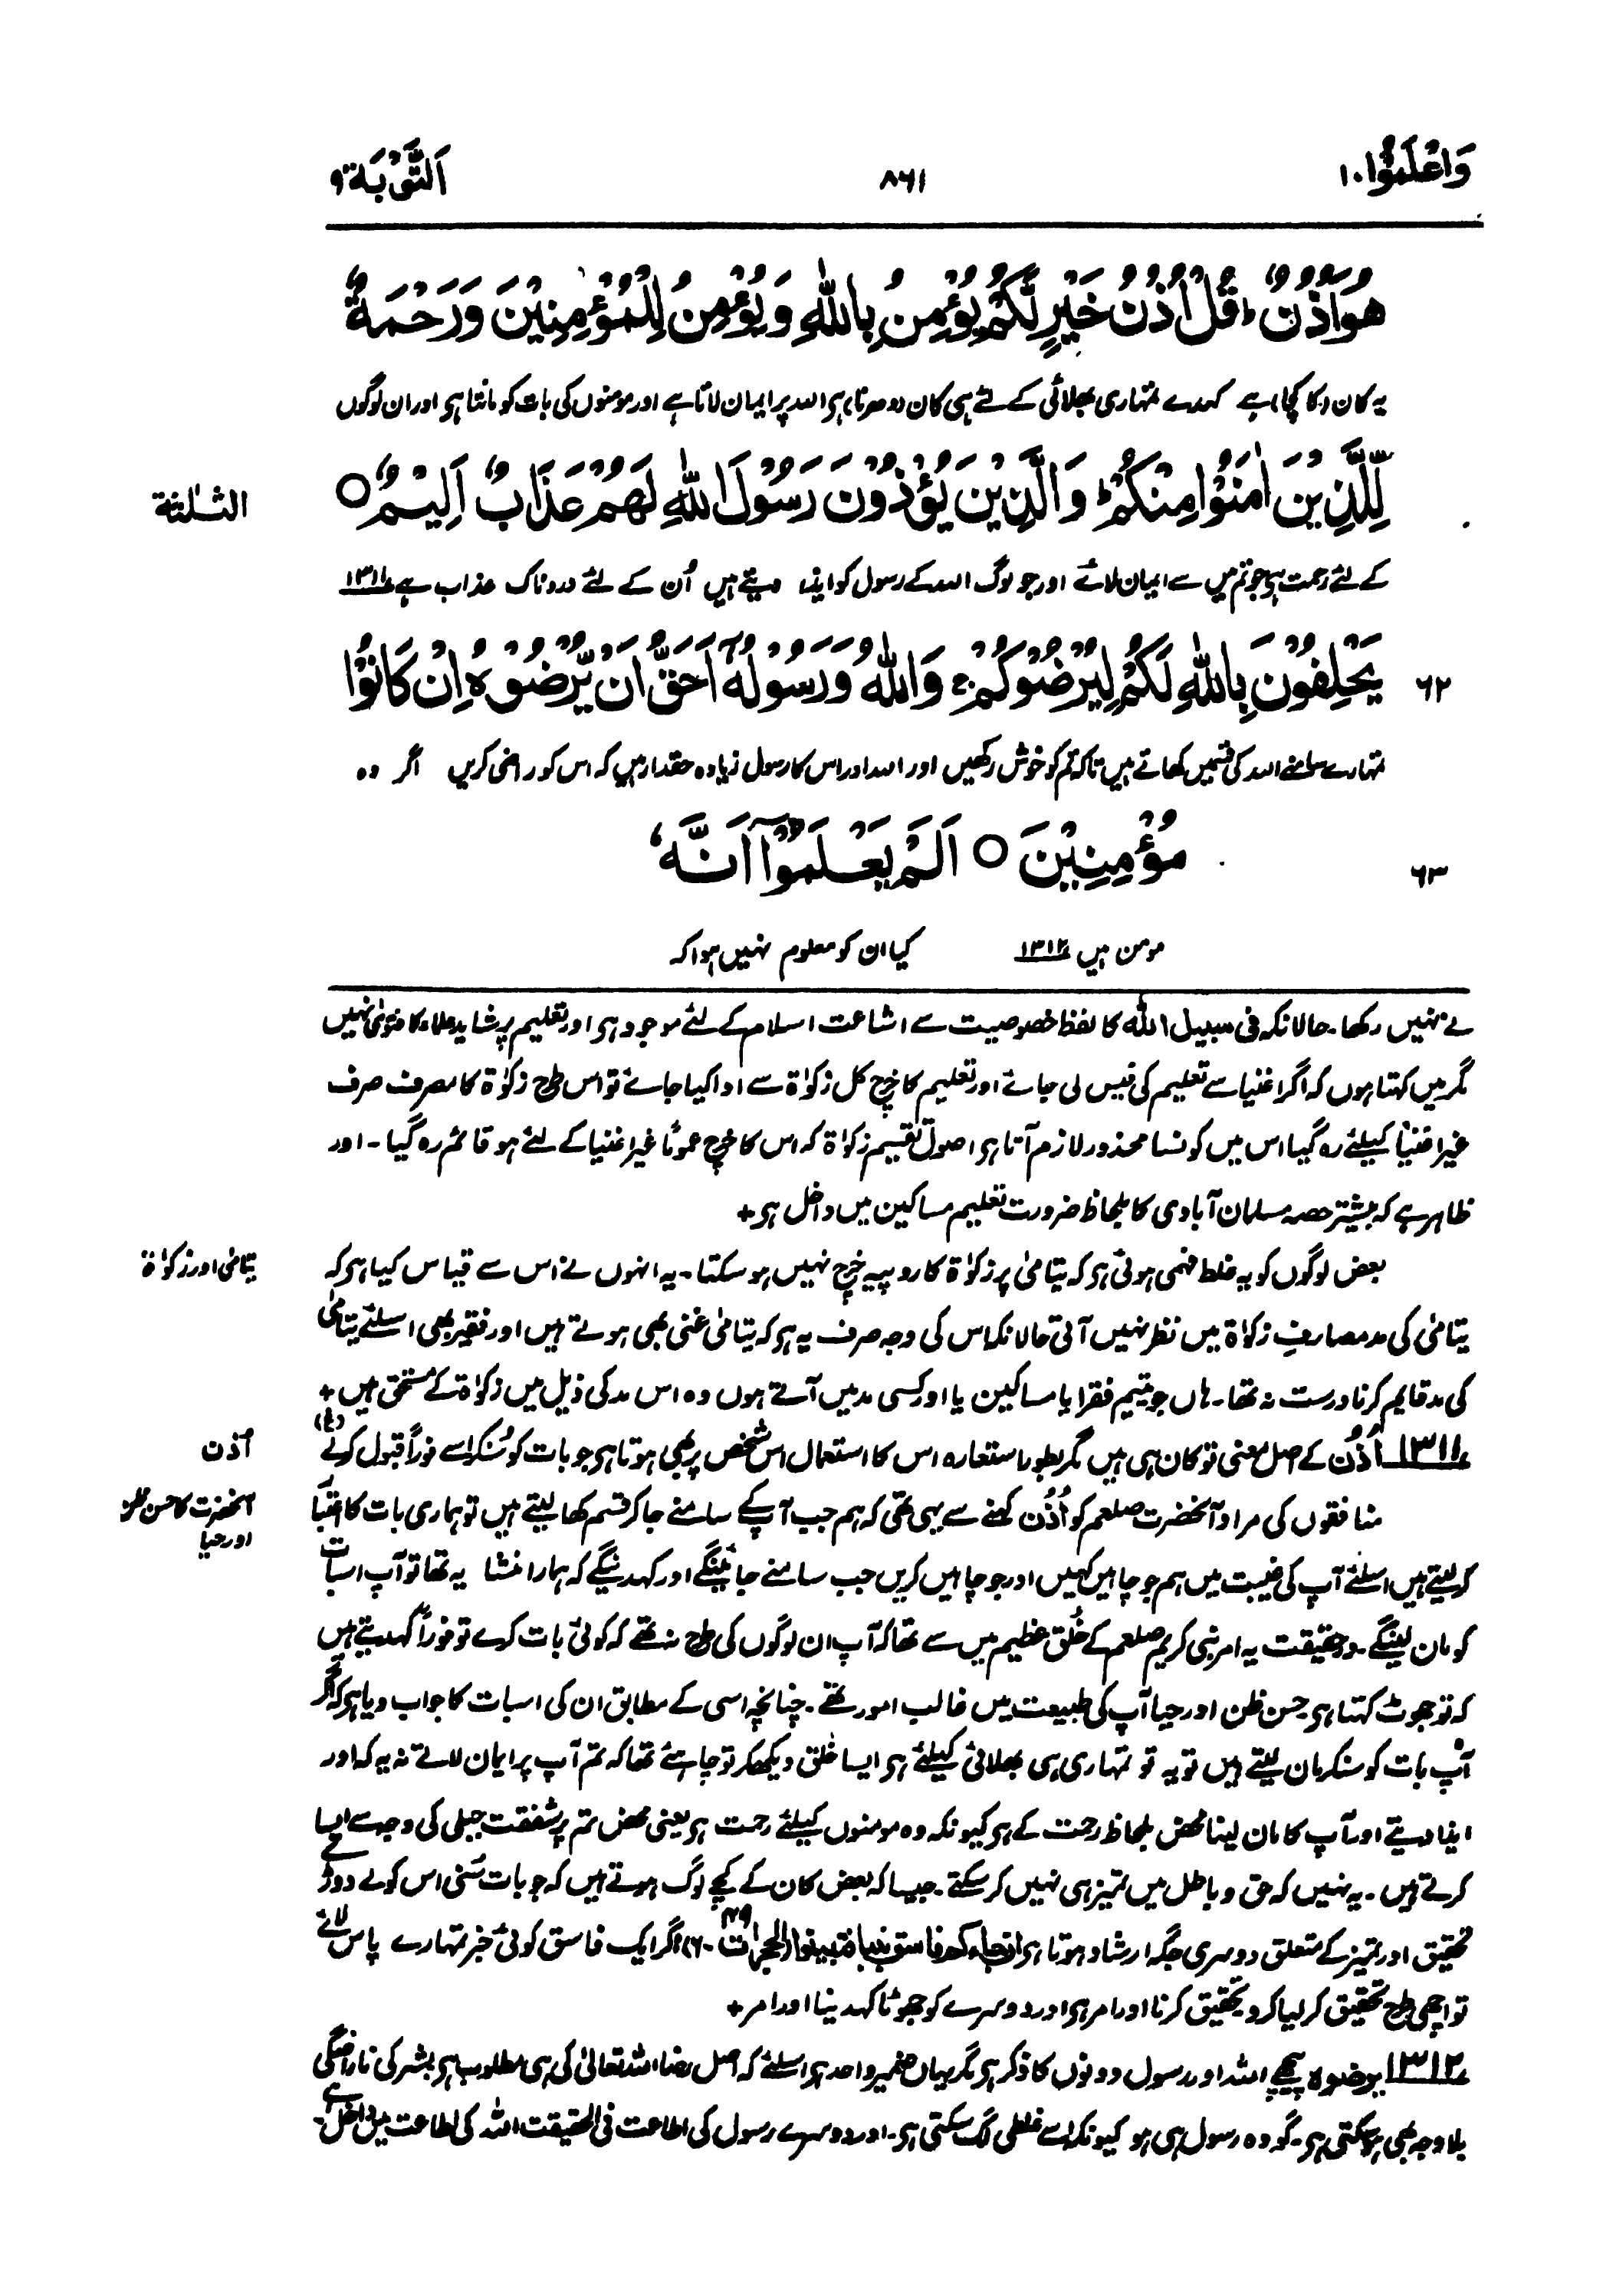 وَاعْلَمُوْا ۱۰
۸۶۱
اَلتَّوْبَة ۹
هُوَ اُذُنٌ ؕ قُلْ اُذُنُ خَيْرٍ لَّكُمْ يُؤْمِنُ بِاللّٰهِ وَ يُؤْمِنُ لِلْمُؤْمِنِيْنَ وَ رَحْمَةٌ
یہ کان (کا کچا) ہے کہدے تمہاری بھلائی کے لئے ہی کان (دھرتا) ہی اللہ پر ایمان لاتا ہے اور مومنوں کی بات کو مانتا ہی اور ان لوگوں
لِّلَّذِيْنَ اٰمَنُوْا مِنْكُمْ ؕ وَ الَّذِيْنَ يُؤْذُوْنَ رَسُوْلَ اللّٰهِ لَهُمْ عَذَابٌ اَلِيْمٌ ○
الثلثة
کے لئے رحمت ہی جو تم میں سے ایمان لائے اور جو لوگ اللہ کے رسول کو ایذا دیتے ہیں اُن کے لئے دردناک عذاب ہے ۱۳۱۱
۶۲
يَحْلِفُوْنَ بِاللّٰهِ لَكُمْ لِيُرْضُوْكُمْ ۚ وَ اللّٰهُ وَ رَسُوْلُهٗۤ اَحَقُّ اَنْ يُّرْضُوْهُ اِنْ كَانُوْا
تمہارے سامنے اللہ کی قسمیں کھاتے ہیں تاکہ تم کو خوش رکھیں اور اللہ اور اس کا رسول زیادہ حقدار ہیں کہ اس کو راضی کریں اگر وہ
۶۳
مُؤْمِنِيْنَ ○ اَلَمْ يَعْلَمُوْۤا اَنَّهٗ
مومن ہیں ۱۳۱۲ کیا ان کو معلوم نہیں ہوا کہ
نے نہیں رکھا۔ حالانکہ فی سبیل اللّٰہ کا لفظ خصوصیت سے اشاعت اسلام کے لئے موجود ہی اور تعلیم پر شاید علماء کا فتویٰ نہیں
مگر میں کہتا ہوں کہ اگر اغنیا سے تعلیم کی فیس لی جائے اور تعلیم کا خرچ کل زکوٰۃ سے ادا کیا جائے تو اس طرح زکوٰۃ کا مصرف صرف
غیر اغنیا کیلئے رہ گیا اس میں کونسا محذور لازم آتا ہی اصول تقسیم زکوٰۃ کہ اس کا خرچ عموماً غیر اغنیا کے لئے ہو قائم رہ گیا۔ اور
ظاہر ہے کہ بیشتر حصہ مسلمان آبادی کا بلحاظ ضرورت تعلیم مساکین میں داخل ہی +
یتامیٰ اور زکوٰۃ
بعض لوگوں کو یہ غلط فہمی ہوئی ہی کہ یتامیٰ پر زکوٰۃ کا روپیہ خرچ نہیں ہو سکتا۔ یہ انہوں نے اس سے قیاس کیا ہی کہ
یتامیٰ کی مد مصارفِ زکوٰۃ میں نظر نہیں آتی حالانکہ اس کی وجہ صرف یہ ہی کہ یتامیٰ غنی بھی ہوتے ہیں اور فقیر بھی اسلئے یتامیٰ
کی مد قایم کرنا درست نہ تھا۔ ہاں جو یتیم فقرا یا مساکین یا اور کسی مد میں آتے ہوں وہ اس مد کی ذیل میں زکوٰۃ کے مستحق ہیں +
اُذن
۱۳۱۱ اُذُن کے اصل معنی تو کان ہی ہیں مگر بطور استعارہ اس کا استعمال اس شخص پر بھی ہوتا ہی جو بات کو سُنکر اسے فوراً قبول کرلے (غ)
آنحضرت کا حسن ظن اور حیا
منافقوں کی مراد آنحضرت صلعم کو اُذُن کہنے سے یہی تھی کہ ہم جب آپ کے سامنے جا کر قسم کھا لیتے ہیں تو ہماری بات کا اعتبار
کر لیتے ہیں اسلئے آپ کی غیبت میں ہم جو چاہیں کہیں اور جو چاہیں کریں جب سامنے جائینگے اور کہدینگے کہ ہمارا منشا یہ تھا تو آپ اسبات
کو مان لینگے۔ درحقیقت یہ امر نبی کریم صلعم کے خُلق عظیم میں سے تھا کہ آپ ان لوگوں کی طرح نہ تھے کہ کوئی بات کرے تو فوراً کہدیتے ہیں
کہ تو جھوٹ کہتا ہی حسن ظن اور حیا آپ کی طبیعت میں غالب امور تھے۔ چنانچہ اسی کے مطابق ان کی اسبات کا جواب دیا ہی کہ اگر
آپ بات کو سنکر مان لیتے ہیں تو یہ تو تمہاری ہی بھلائی کیلئے ہی ایسا خُلق دیکھکر تو چاہئے تھا کہ تم آپ پر ایمان لاتے نہ یہ کہ اور
ایذا دیتے اور آپ کا مان لینا محض بلحاظ رحمت کے ہی کیونکہ وہ مومنوں کیلئے رحمت ہی یعنی محض تم پر شفقت جبلی کی وجہ سے ایسا
کرتے ہیں۔ یہ نہیں کہ حق و باطل میں تمیز ہی نہیں کر سکتے۔ جیسا کہ بعض کان کے کچے لوگ ہوتے ہیں کہ جو بات سُنی اس کو لے دوڑے
تحقیق اور تمیز کے متعلق دوسری جگہ ارشاد ہوتا ہی ان جاءکم فاسق بنبا فتبینوا (الحجرات ۴۹۔۶) اگر ایک فاسق کوئی خبر تمہارے پاس لائے
تو اچھی طرح تحقیق کر لیا کرو تحقیق کرنا اور امر ہی اور دوسرے کو جھوٹا کہدینا اور امر +
۱۳۱۲ یرضوہ پیچھے اللہ اور رسول دونوں کا ذکر ہی مگر یہاں ضمیر واحد ہی اسلئے کہ اصل رضا اللہ تعالیٰ کی ہی مطلوب ہی بشر کی ناراضگی
بلا وجہ بھی ہو سکتی ہی۔ گو وہ رسول ہی ہو کیونکہ اسے غلطی لگ سکتی ہی۔ اور دوسرے رسول کی اطاعت فی الحقیقت اللہ کی اطاعت میں داخل ہے۔